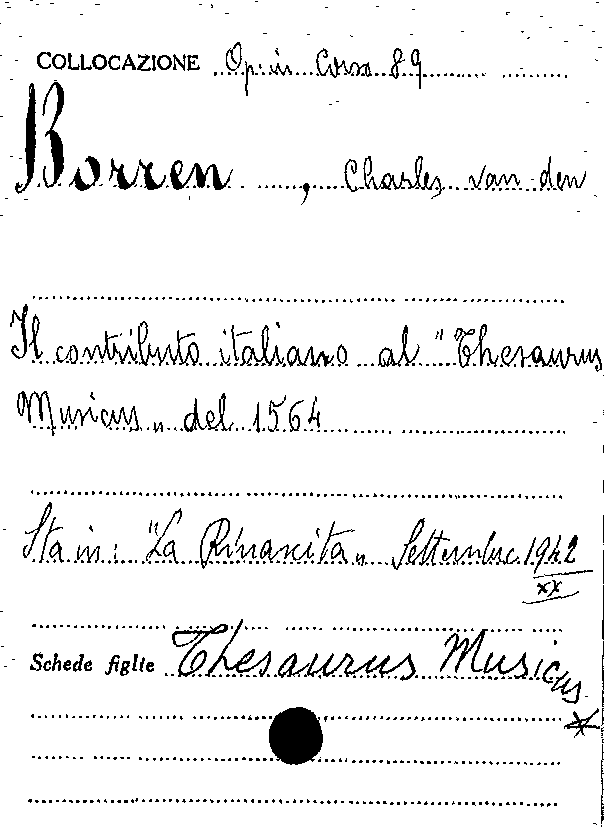 COLLOCAZIONE Op. in Corso 89
Borren, Charles van den
Il contributo italiano al "Thesaurus
Musicus" del 1564
Sta in: "La Rinascita" Settembre 1942
XX
Schede figlie Thesaurus Musicus